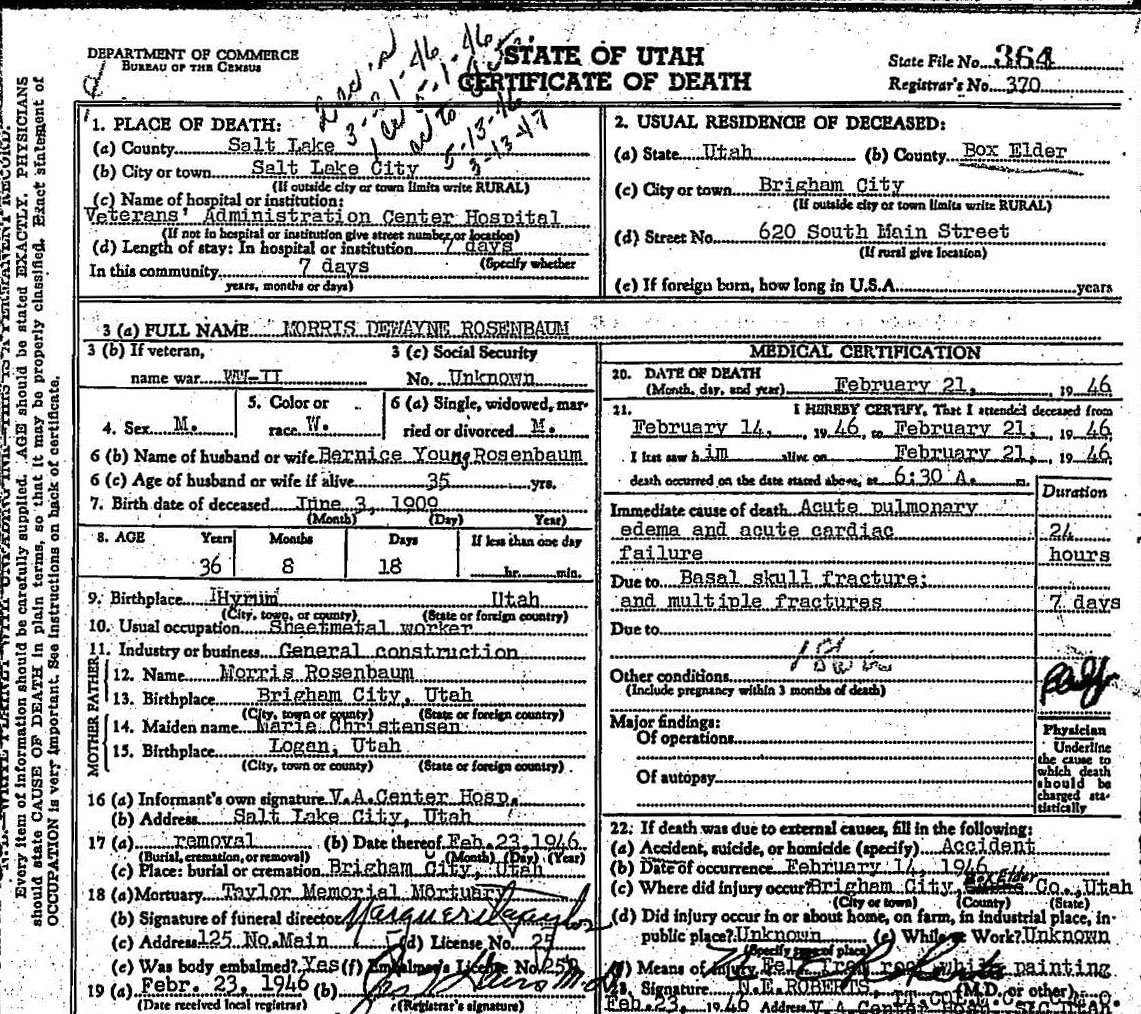 DEPARTMENT OF COMMERCE
BUREAU OF THE CENSUS
STATE OF UTAH
CERTIFICATE OF DEATH
State File No. 364
Registrar's No. 370
3-21-46
5-1-46
5-13-46
3-13-47
Every item of information should be carefully supplied. AGE should be stated EXACTLY. PHYSICIANS
should state CAUSE OF DEATH in plain terms, so that it may be properly classified. Exact statement of
OCCUPATION is very important. See instructions on back of certificate.
1. PLACE OF DEATH:
(a) County Salt Lake
(b) City or town Salt Lake City
(If outside city or town limits write RURAL)
(c) Name of hospital or institution:
Veterans' Administration Center Hospital
(If not in hospital or institution give street number or location)
(d) Length of stay: In hospital or institution 7 days
(Specify whether
In this community 7 days
years, months or days)
2. USUAL RESIDENCE OF DECEASED:
(a) State Utah (b) County Box Elder
(c) City or town Brigham City
(If outside city or town limits write RURAL)
(d) Street No. 620 South Main Street
(If rural give location)
(e) If foreign born, how long in U.S.A. years
3 (a) FULL NAME MORRIS DEWAYNE ROSENBAUM
3 (b) If veteran, 3 (c) Social Security
name war WW-II No. Unknown
4. Sex M. 5. Color or race W. 6 (a) Single, widowed, married or divorced M.
6 (b) Name of husband or wife Bernice Young Rosenbaum
6 (c) Age of husband or wife if alive 35 yrs.
7. Birth date of deceased June 3, 1909
(Month) (Day) Year)
8. AGE Years Months Days If less than one day
36 8 18 hr. min.
9. Birthplace Hyrum Utah
(City, town, or county) (State or foreign country)
10. Usual occupation Sheetmetal worker
11. Industry or business General construction
FATHER
12. Name Morris Rosenbaum
13. Birthplace Brigham City, Utah
(City, town or county) (State or foreign country)
MOTHER
14. Maiden name Marie Christensen
15. Birthplace Logan, Utah
(City, town or county) (State or foreign country)
16 (a) Informant's own signature V.A.Center Hosp.
(b) Address Salt Lake City, Utah
17 (a) removal (b) Date thereof Feb.23,1946
(Burial, cremation, or removal) (Month) (Day) (Year)
(c) Place: burial or cremation Brigham City, Utah
18 (a) Mortuary Taylor Memorial Mortuary
(b) Signature of funeral director Marguerite Taylor
(c) Address 125 No.Main (d) License No. 25
(e) Was body embalmed? Yes (f) Embalmer's License No.
19 (a) Febr. 23, 1946 (b)
(Date received local registrar) (Registrar's signature)
MEDICAL CERTIFICATION
20. DATE OF DEATH
(Month, day, and year) February 21, 19 46
21. I HEREBY CERTIFY, That I attended deceased from
February 14, 19 46, to February 21, 19 46
I last saw him alive on February 21, 19 46
death occurred on the date stated above, at 6:30 A. m.
Duration
Immediate cause of death Acute pulmonary
edema and acute cardiac 24
failure hours
Due to Basal skull fracture;
and multiple fractures 7 days
Due to
Other conditions
(Include pregnancy within 3 months of death)
Major findings:
Of operations
Of autopsy
Physician
Underline
the cause to
which death
should be
charged sta-
tistically
22. If death was due to external causes, fill in the following:
(a) Accident, suicide, or homicide (specify) Accident
(b) Date of occurrence February 14, 1946
(c) Where did injury occur? Brigham City, Box Elder Co., Utah
(City or town) (County) (State)
(d) Did injury occur in or about home, on farm, in industrial place, in
public place? Unknown (e) While at Work? Unknown
(Specify type of place)
(f) Means of injury Fell from roof while painting
23. Signature N.E.ROBERTS, (M.D. or other)
Feb.23, 1946 Address V.A.Center Hosp. SLC Utah